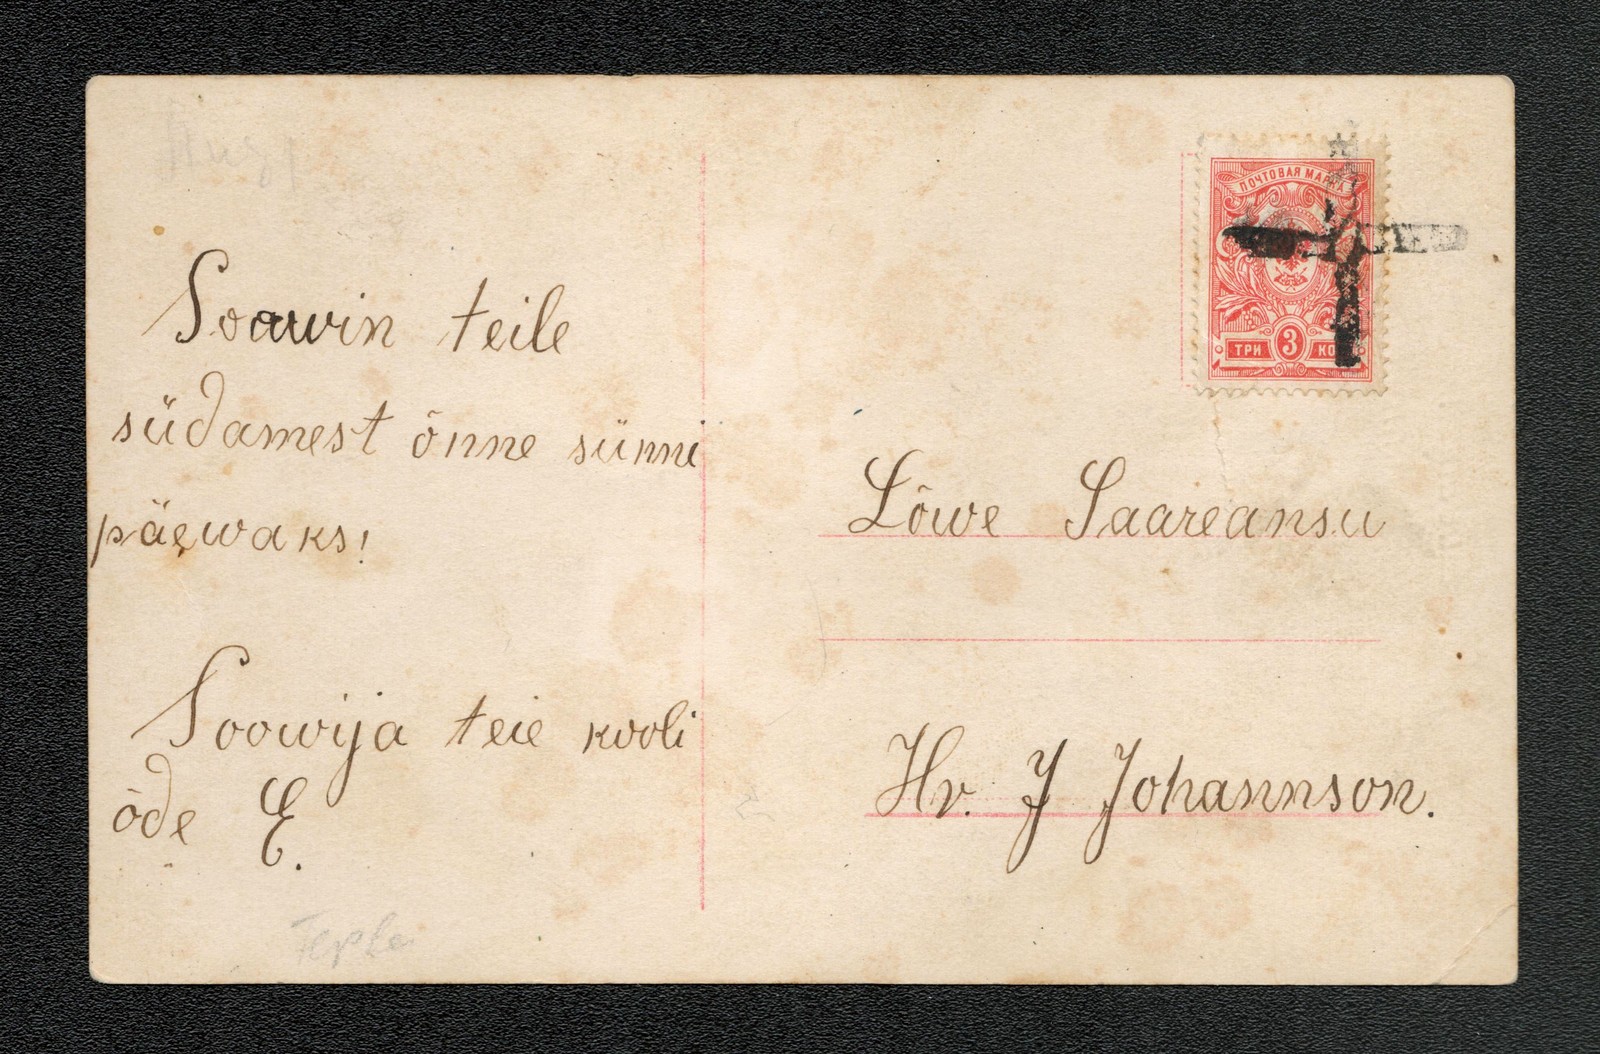 Soowin teile
südamest õnne sünni
päewaks!
Soowija teie kooli
õde E.
ПОЧТОВАЯ МАРКА
ТРИ 3 КОП
Lõwe Saareansu
Hr. J Johannson.